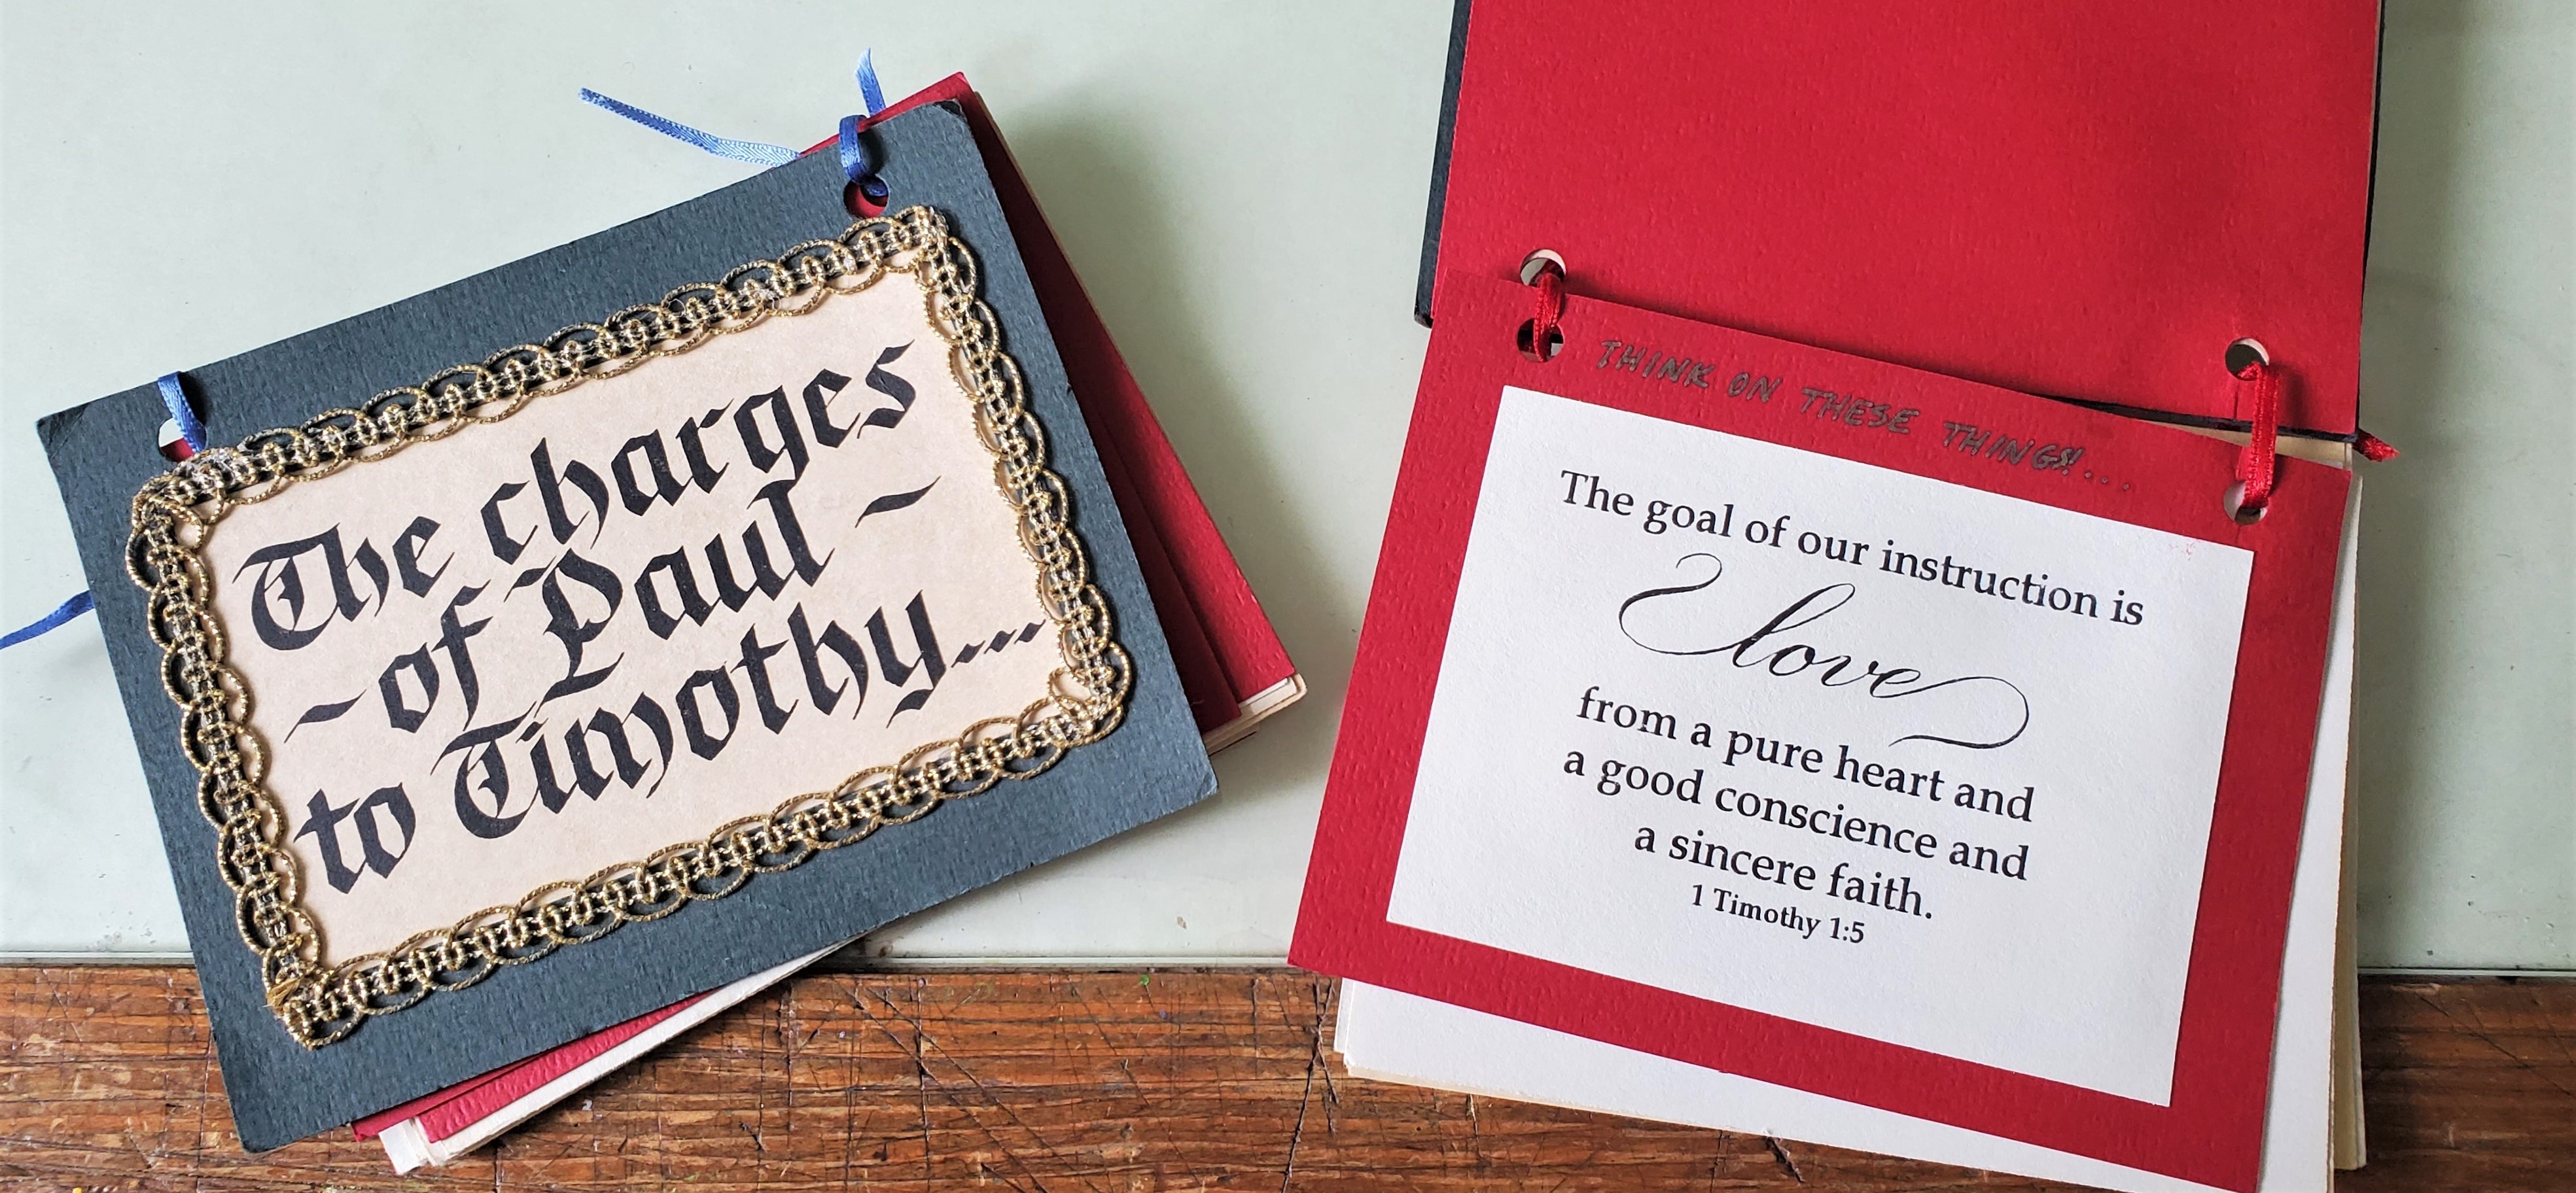 The charges
~of Paul~
to Timothy...
THINK ON THESE THINGS!!...
The goal of our instruction is
love
from a pure heart and
a good conscience and
a sincere faith.
1 Timothy 1:5